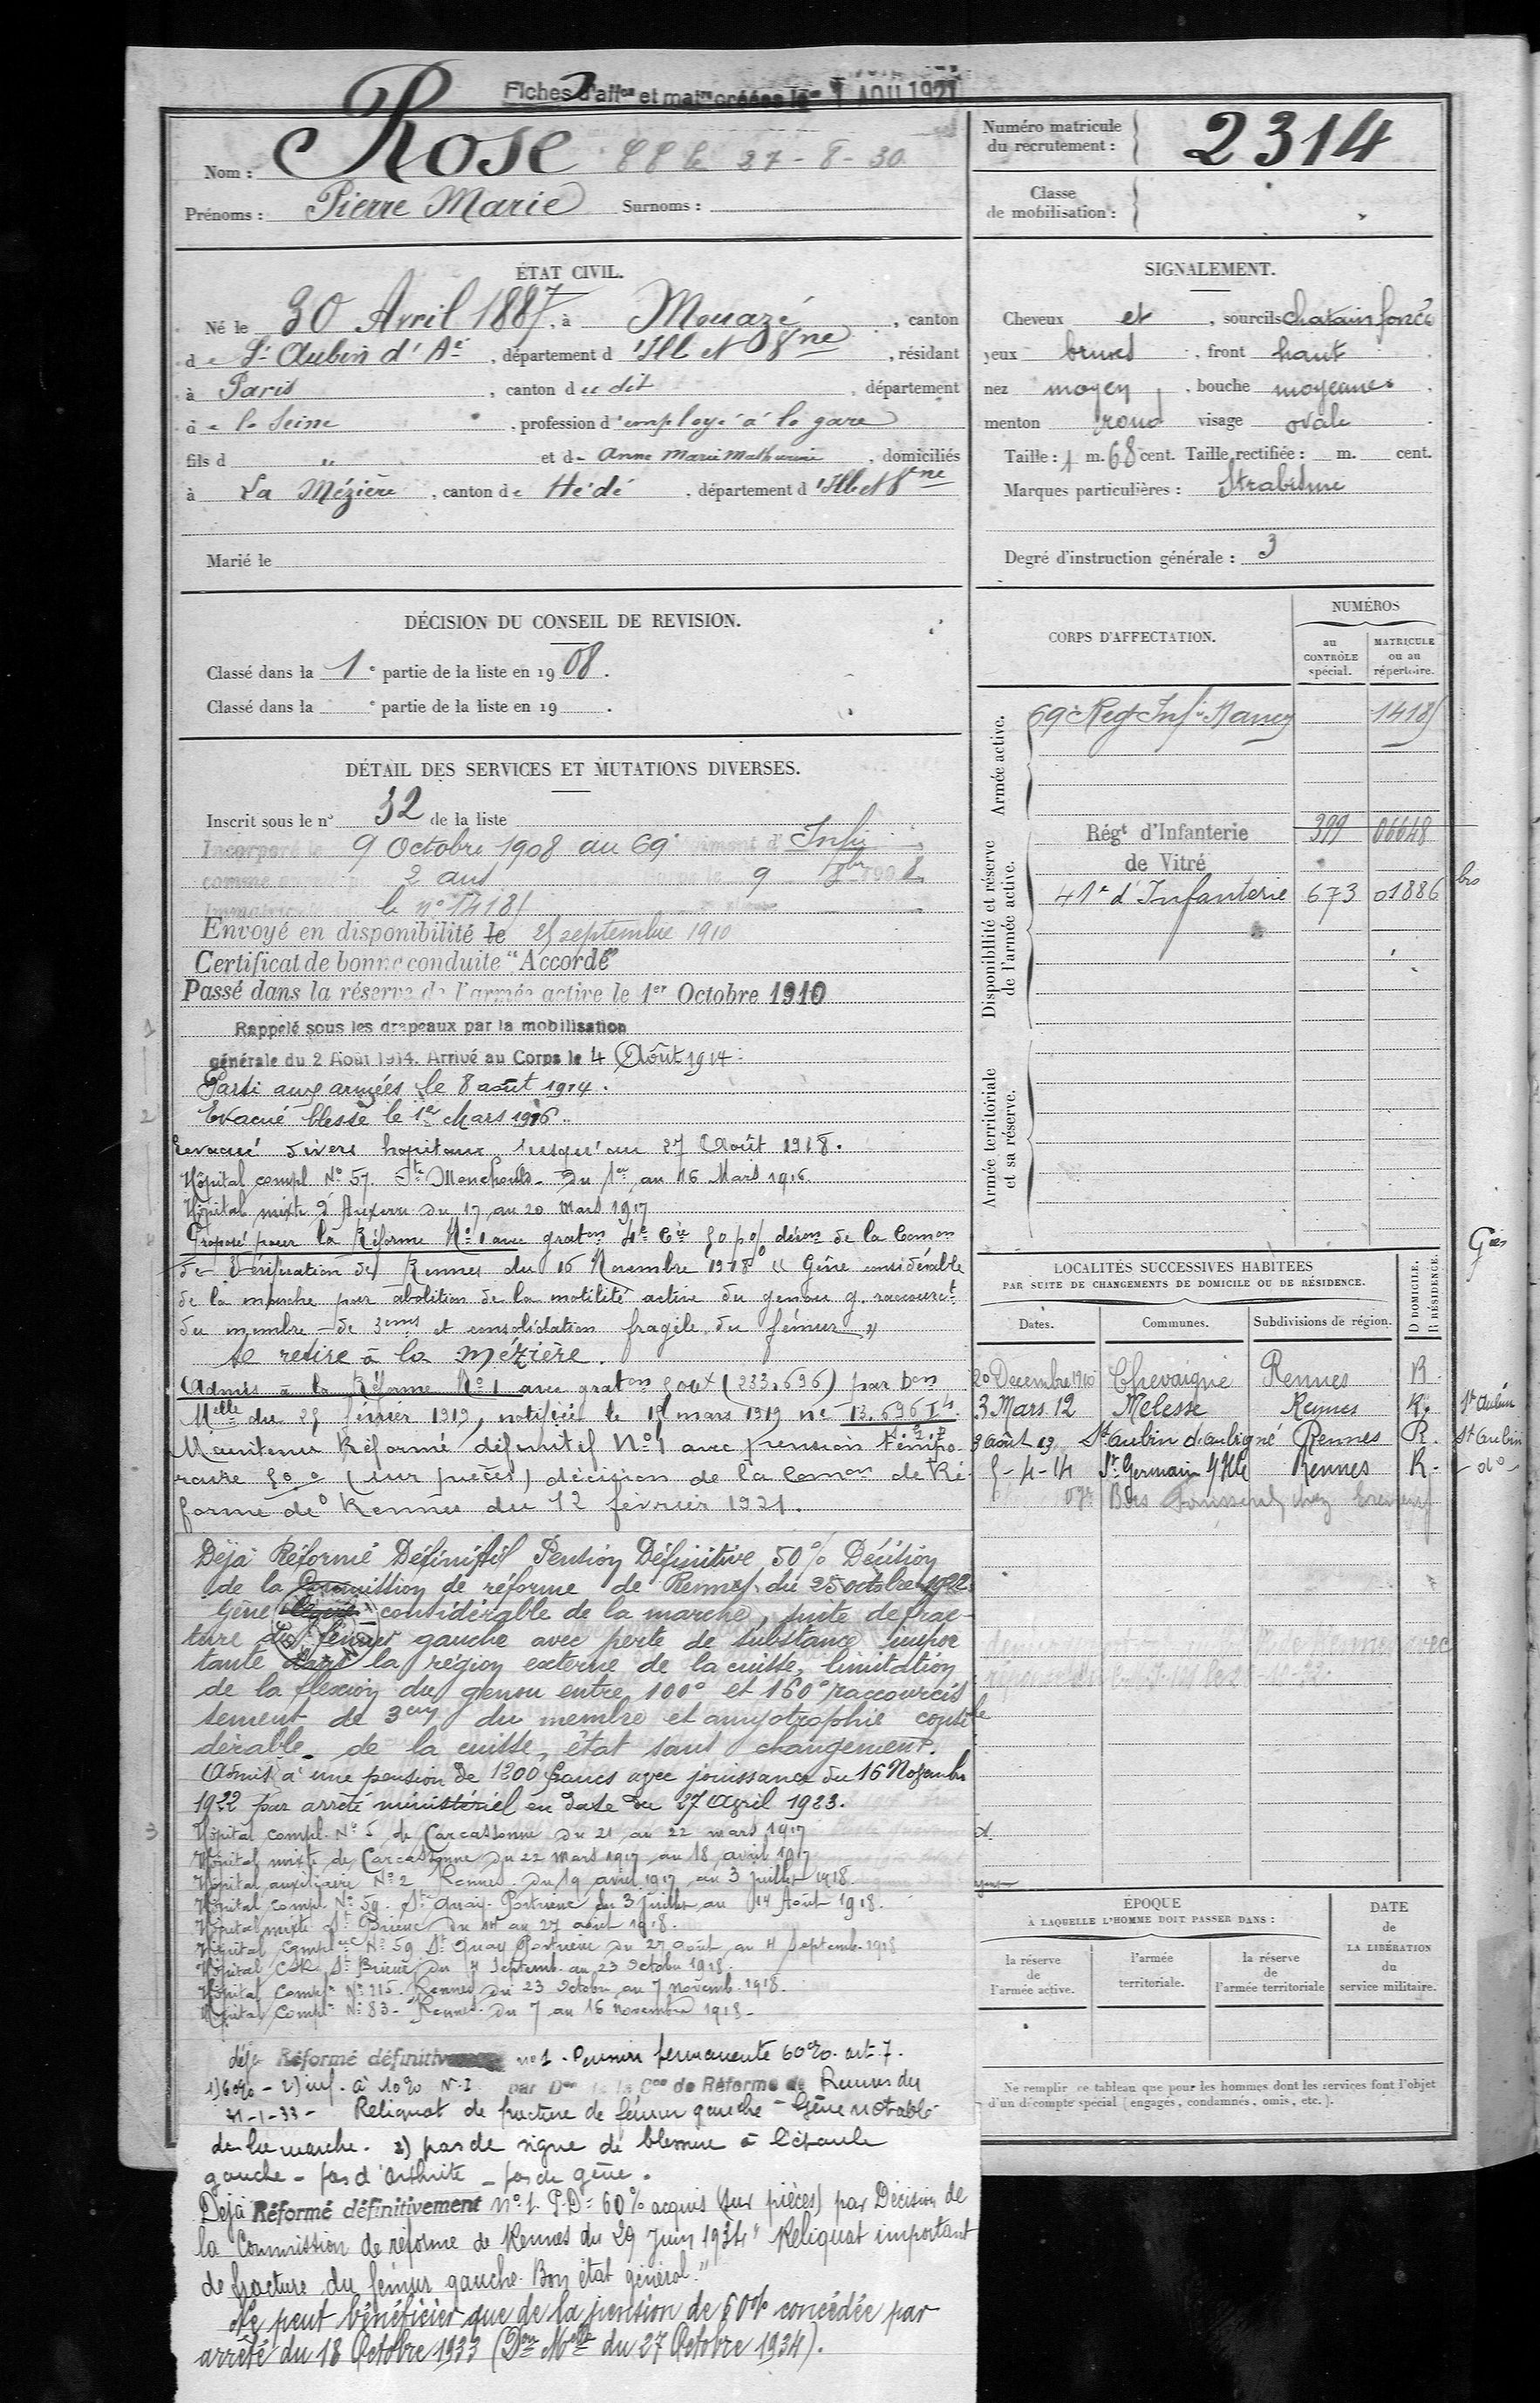 Fiches d'affon et matre créées le 1 AOU 1921
Nom : Rose 27 - 8 - 30
Prénoms : Pierre Marie Surnoms :
Numéro matricule
du recrutement : 2314
Classe
de mobilisation :
ÉTAT CIVIL.
Né le 30 Avril 1887, à Mouazé, canton
de St Aubin d'Aé, département d'Ill et Vne, résidant
à Paris, canton du dit, département
de la Seine, profession d'employé à la gare
fils d " et de Anne Marie Mathurine, domiciliés
à La Mézière, canton de Hédé, département d'Ille et Vne
Marié le
SIGNALEMENT.
Cheveux et , sourcils chatain foncé
yeux bruns , front haut
nez moyen , bouche moyenne
menton rond visage ovale
Taille : 1 m. 68 cent. Taille rectifiée : m. cent.
Marques particulières : Strabisme
Degré d'instruction générale : 3
DÉCISION DU CONSEIL DE REVISION.
Classé dans la 1e partie de la liste en 1908.
Classé dans la e partie de la liste en 19 .
DÉTAIL DES SERVICES ET MUTATIONS DIVERSES.
Inscrit sous le n° 32 de la liste
Incorporé le 9 Octobre 1908 au 69e Régiment d'Infie
comme 2 ans le 9 8bre 1908
le n° 14185
Envoyé en disponibilité le 25 septembre 1910
Certificat de bonne conduite "Accordé"
Passé dans la réserve de l'armée active le 1er Octobre 1910
Rappelé sous les drapeaux par la mobilisation
générale du 2 Août 1914. Arrivé au Corps le 4 Août 1914.
Parti aux armées le 8 août 1914.
Evacué blessé le 1er Mars 1916.
Evacué divers hopitaux jusqu'au 27 Août 1918.
Hôpital compl. N° 57. Ste Menehould - Du 1er au 16 Mars 1916.
Hôpital mixte d'Auxerre du 17 au 20 mars 1917
Proposé pour la Réforme N° 1 avec graton 4e Cie 50 p% déson de la Comon
de Vérification de Rennes du 16 Novembre 1918 "Gêne considérable
de la marche par abolition de la motilité active du genou g. raccourct
du membre - de 3cms et consolidation fragile du fémur"
Se retire à la Mézière.
Admis à la Réforme N° 1 avec graton (233.696) par Don
Melle du 25 février 1919, notifiée le 15 mars 1919 n° 13.696
Maintenu Réformé définitif N° 1 avec pension tempo-
raire 50% (sur pièces) décision de la Comon de Ré-
forme de Rennes du 12 février 1921.
Déjà Réformé Définitif Pension Définitive 50% Décision
de la Commission de réforme de Rennes du 25 octobre 1922.
Gêne considérable de la marche, suite de frac-
ture du fémur gauche avec perte de substance impor
tante dans la région externe de la cuisse, limitation
de la flexion du genou entre 100° et 160° raccourcis
sement de 3cm du membre et amyotrophie consi
dérable de la cuisse, état sans changement.
Admis à une pension de 1200 francs avec jouissance du 16 Novembre
1922 par arrêté ministériel en date du 27 Avril 1923.
Hôpital compl. N° 5 de Carcassonne du 21 au 22 mars 1917
Hôpital mixte de Carcassonne du 22 mars 1917 au 18 avril 1917
Hôpital auxiliaire N° 2 Rennes. Du 19 avril 1917 au 3 Juillet 1918.
Hôpital compl. N° 59. St Quay Portrieux du 3 Juillet au 14 Août 1918.
Hôpital mixte St Brieuc du 14 au 27 août 1918.
Hôpital Complre N° 59 St Quay Portrieux du 27 août au 4 Septemb. 1918
Hôpital St Brieuc Du 4 Septemb. au 23 Octobre 1918.
Hôpital Compl. N° 115. Rennes du 23 Octobre au 7 novemb. 1918.
Hôpital Compl. N° 83 - Rennes. Du 7 au 16 novembre 1918 -
déjà Réformé définitiv n° 1. Pension permanente 60%. art. 7.
1) 60% - 2) inf. à 10% par Don de la Con de Réforme de Rennes du
31-1-33 - Reliquat de fracture de fémur gauche - Gêne notable
de la marche. 2) pas de signe de blessure à l'épaule
gauche - pas d'arthrite - pas de gêne.
Déjà Réformé définitivement N° 1. P.D = 60% acquis (sur pièces) par Décision de
la Commission de réforme de Rennes du 29 Juin 1934 "Reliquat important
de fracture du fémur gauche. Bon état général."
Ne peut bénéficier que de la pension de 60% concédée par
arrêté du 18 Octobre 1933 (Don Melle du 27 Octobre 1934).
CORPS D'AFFECTATION.
NUMÉROS
au CONTRÔLE spécial.
MATRICULE ou au répertoire.
Armée active.
69e Regt Infie Nancy 14185
Disponibilité et réserve de l'armée active.
Régt d'Infanterie 399 06648
de Vitré
41e d'Infanterie 673 01886 bis
Armée territoriale et sa réserve.
LOCALITÉS SUCCESSIVES HABITÉES
PAR SUITE DE CHANGEMENTS DE DOMICILE OU DE RÉSIDENCE.
Dates. Communes. Subdivisions de région. D DOMICILE. R RÉSIDENCE.
20 Decembre 1910 Chevaigné Rennes R
3 Mars 12 Melesse Rennes R. St Aubin
9 août 13 St Aubin d'aubigné Rennes R. St Aubin
5-4-14 St Germain s/Ille Rennes R. - do -
ÉPOQUE
À LAQUELLE L'HOMME DOIT PASSER DANS :
la réserve de l'armée active.
l'armée territoriale.
la réserve de l'armée territoriale
DATE
de
LA LIBÉRATION
du
service militaire.
Ne remplir ce tableau que pour les hommes dont les services font l'objet
d'un décompte spécial (engagés, condamnés, omis, etc.).